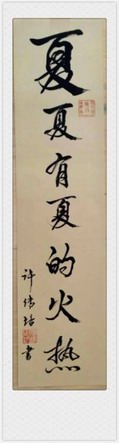 夏夏有夏的火热
许绪培书